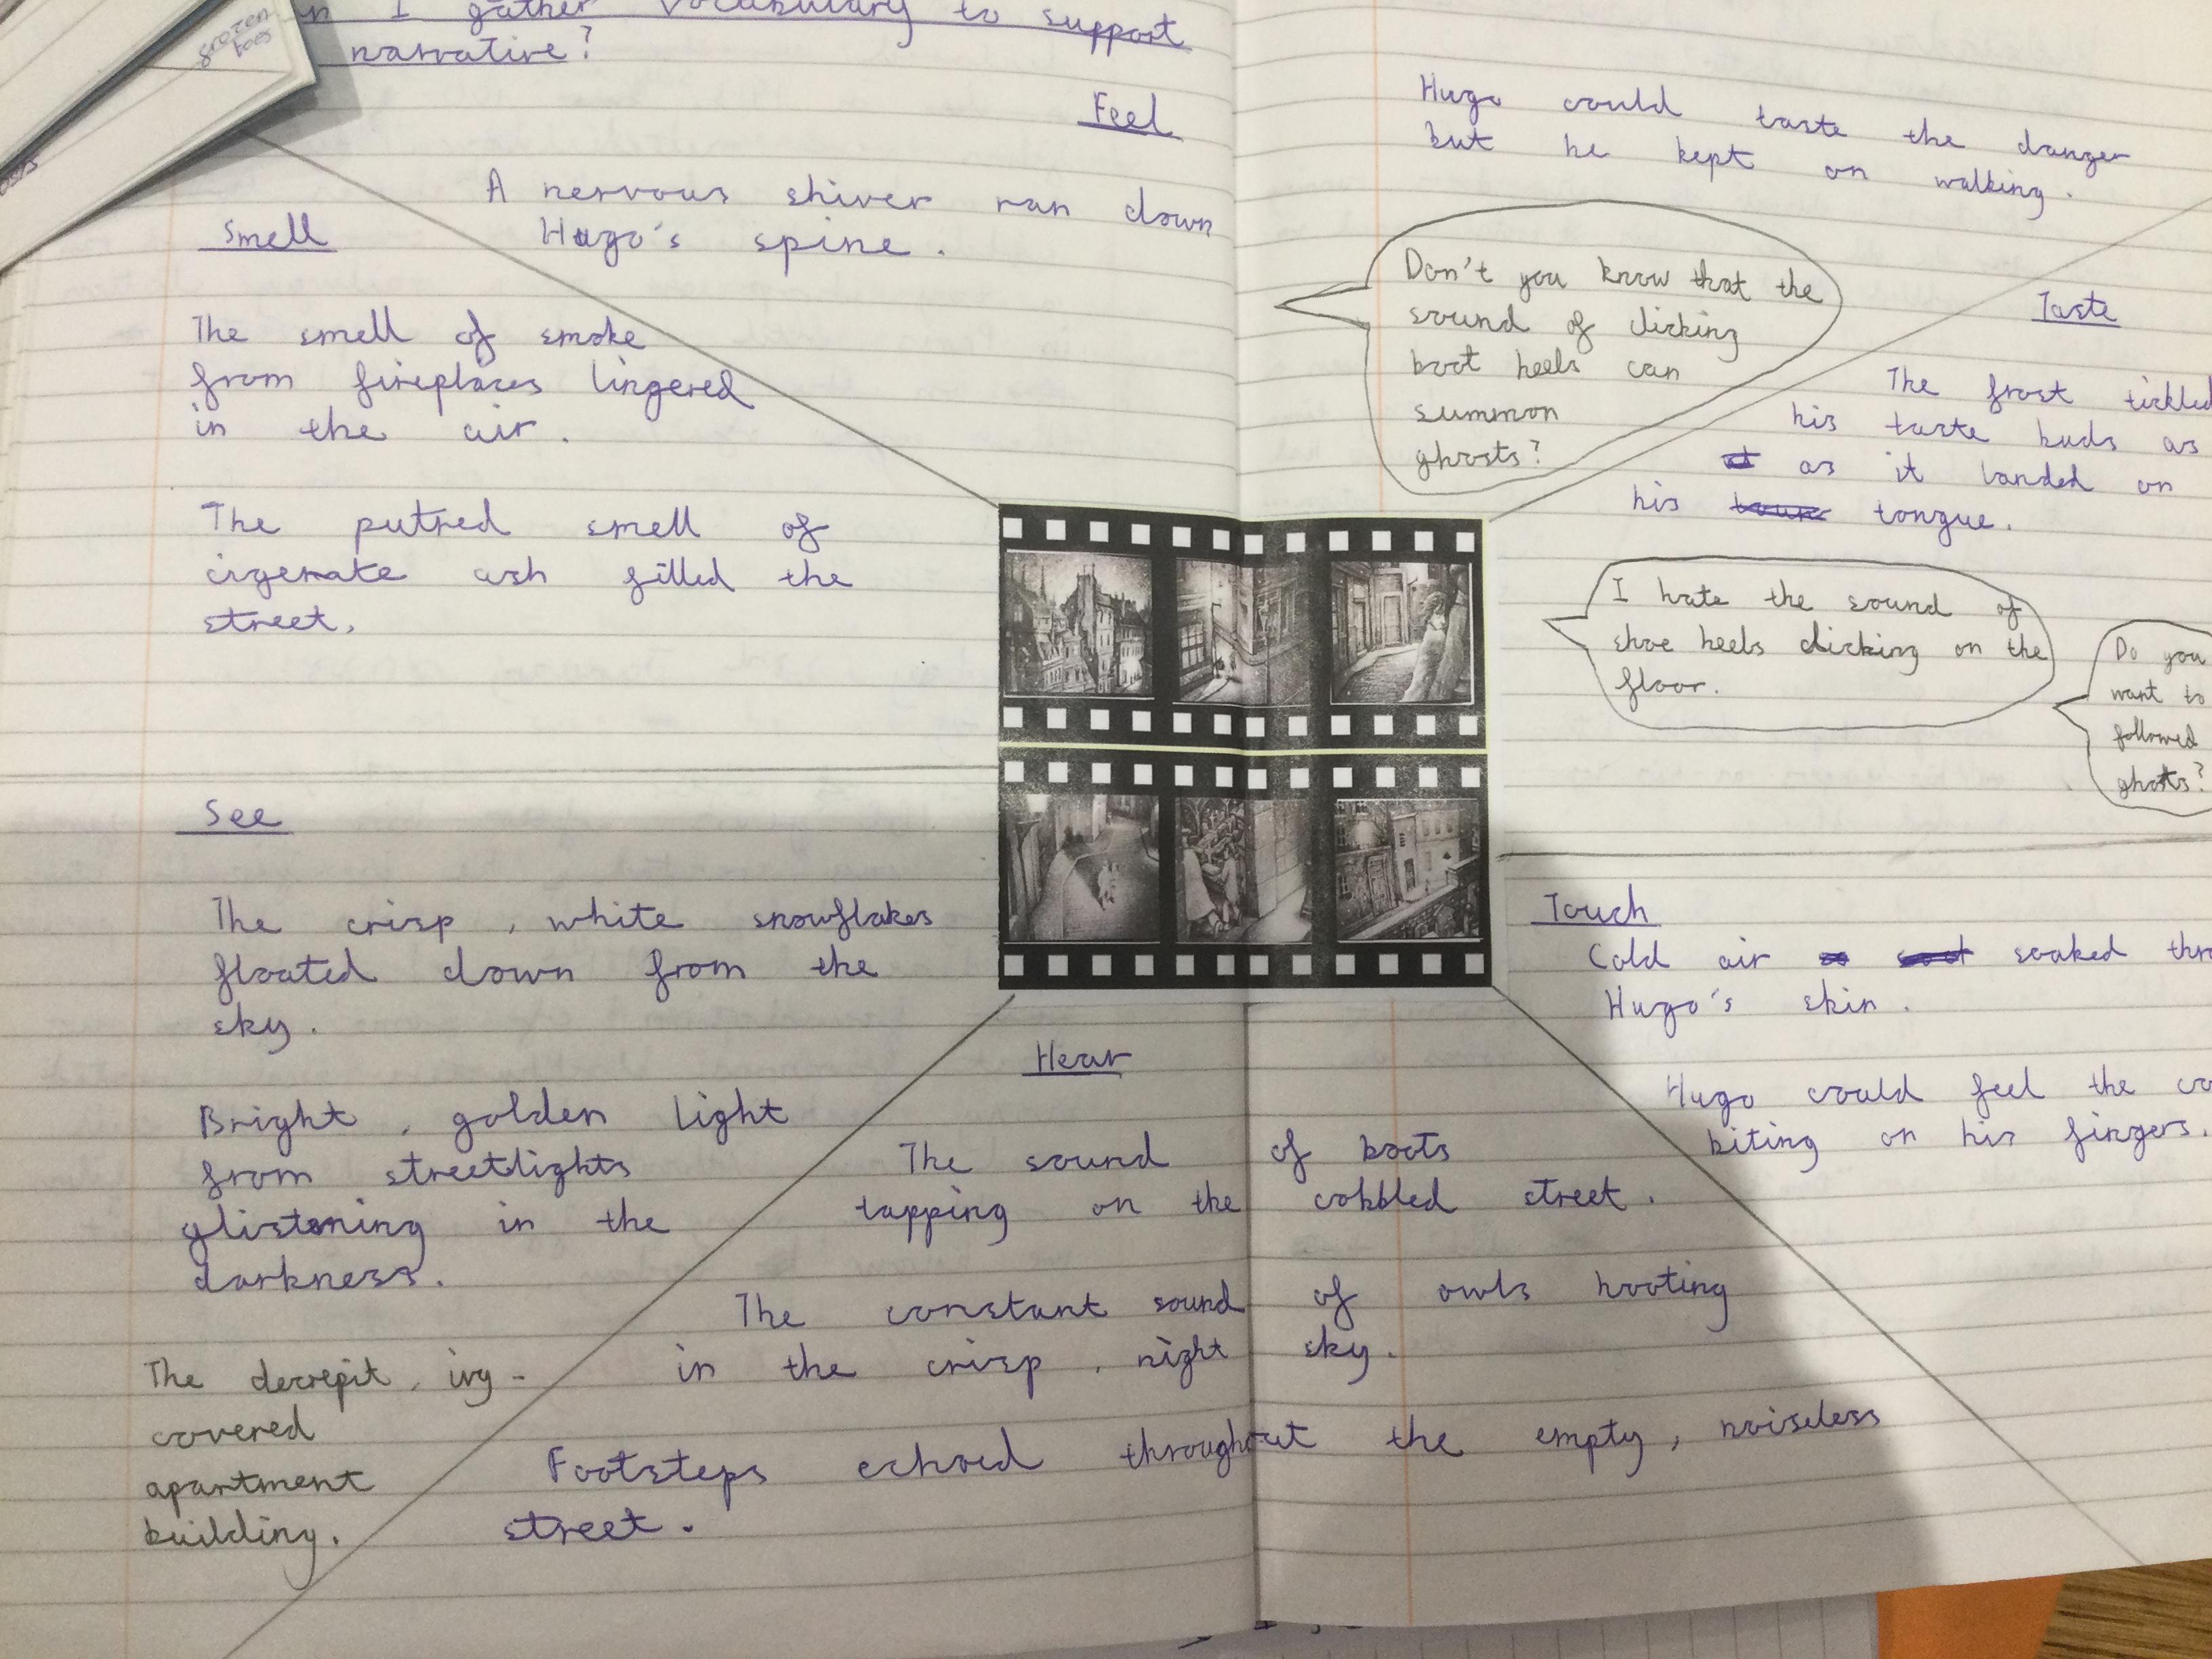 I gather vocabulary to support
narrative?
frozen
toes
Feel
A nervous shiver ran down
Hugo's spine.
Smell
The smell of smoke
from fireplaces lingered
in the air.
The putred smell of
cigerate ash filled the
street.
See
The crisp, white snowflakes
floated down from the
sky.
Bright, golden light
from streetlights
glistening in the
darkness.
The decrepit, ivy-
covered
apartment
building.
Hear
The sound of boots
tapping on the cobbled street.
The constant sound of owls hooting
in the crisp, night sky.
Footsteps echoed throughout the empty, noiseless
street.
Hugo could taste the danger
but he kept on walking.
Don't you know that the
sound of clicking
boot heels can
summon
ghosts?
Taste
The frost tickled
his taste buds as
as it landed on
his tongue.
I hate the sound of
shoe heels clicking on the
floor.
Do you
want to
followed
ghosts?
Touch
Cold air soaked
Hugo's skin.
Hugo could feel the
biting on his fingers.